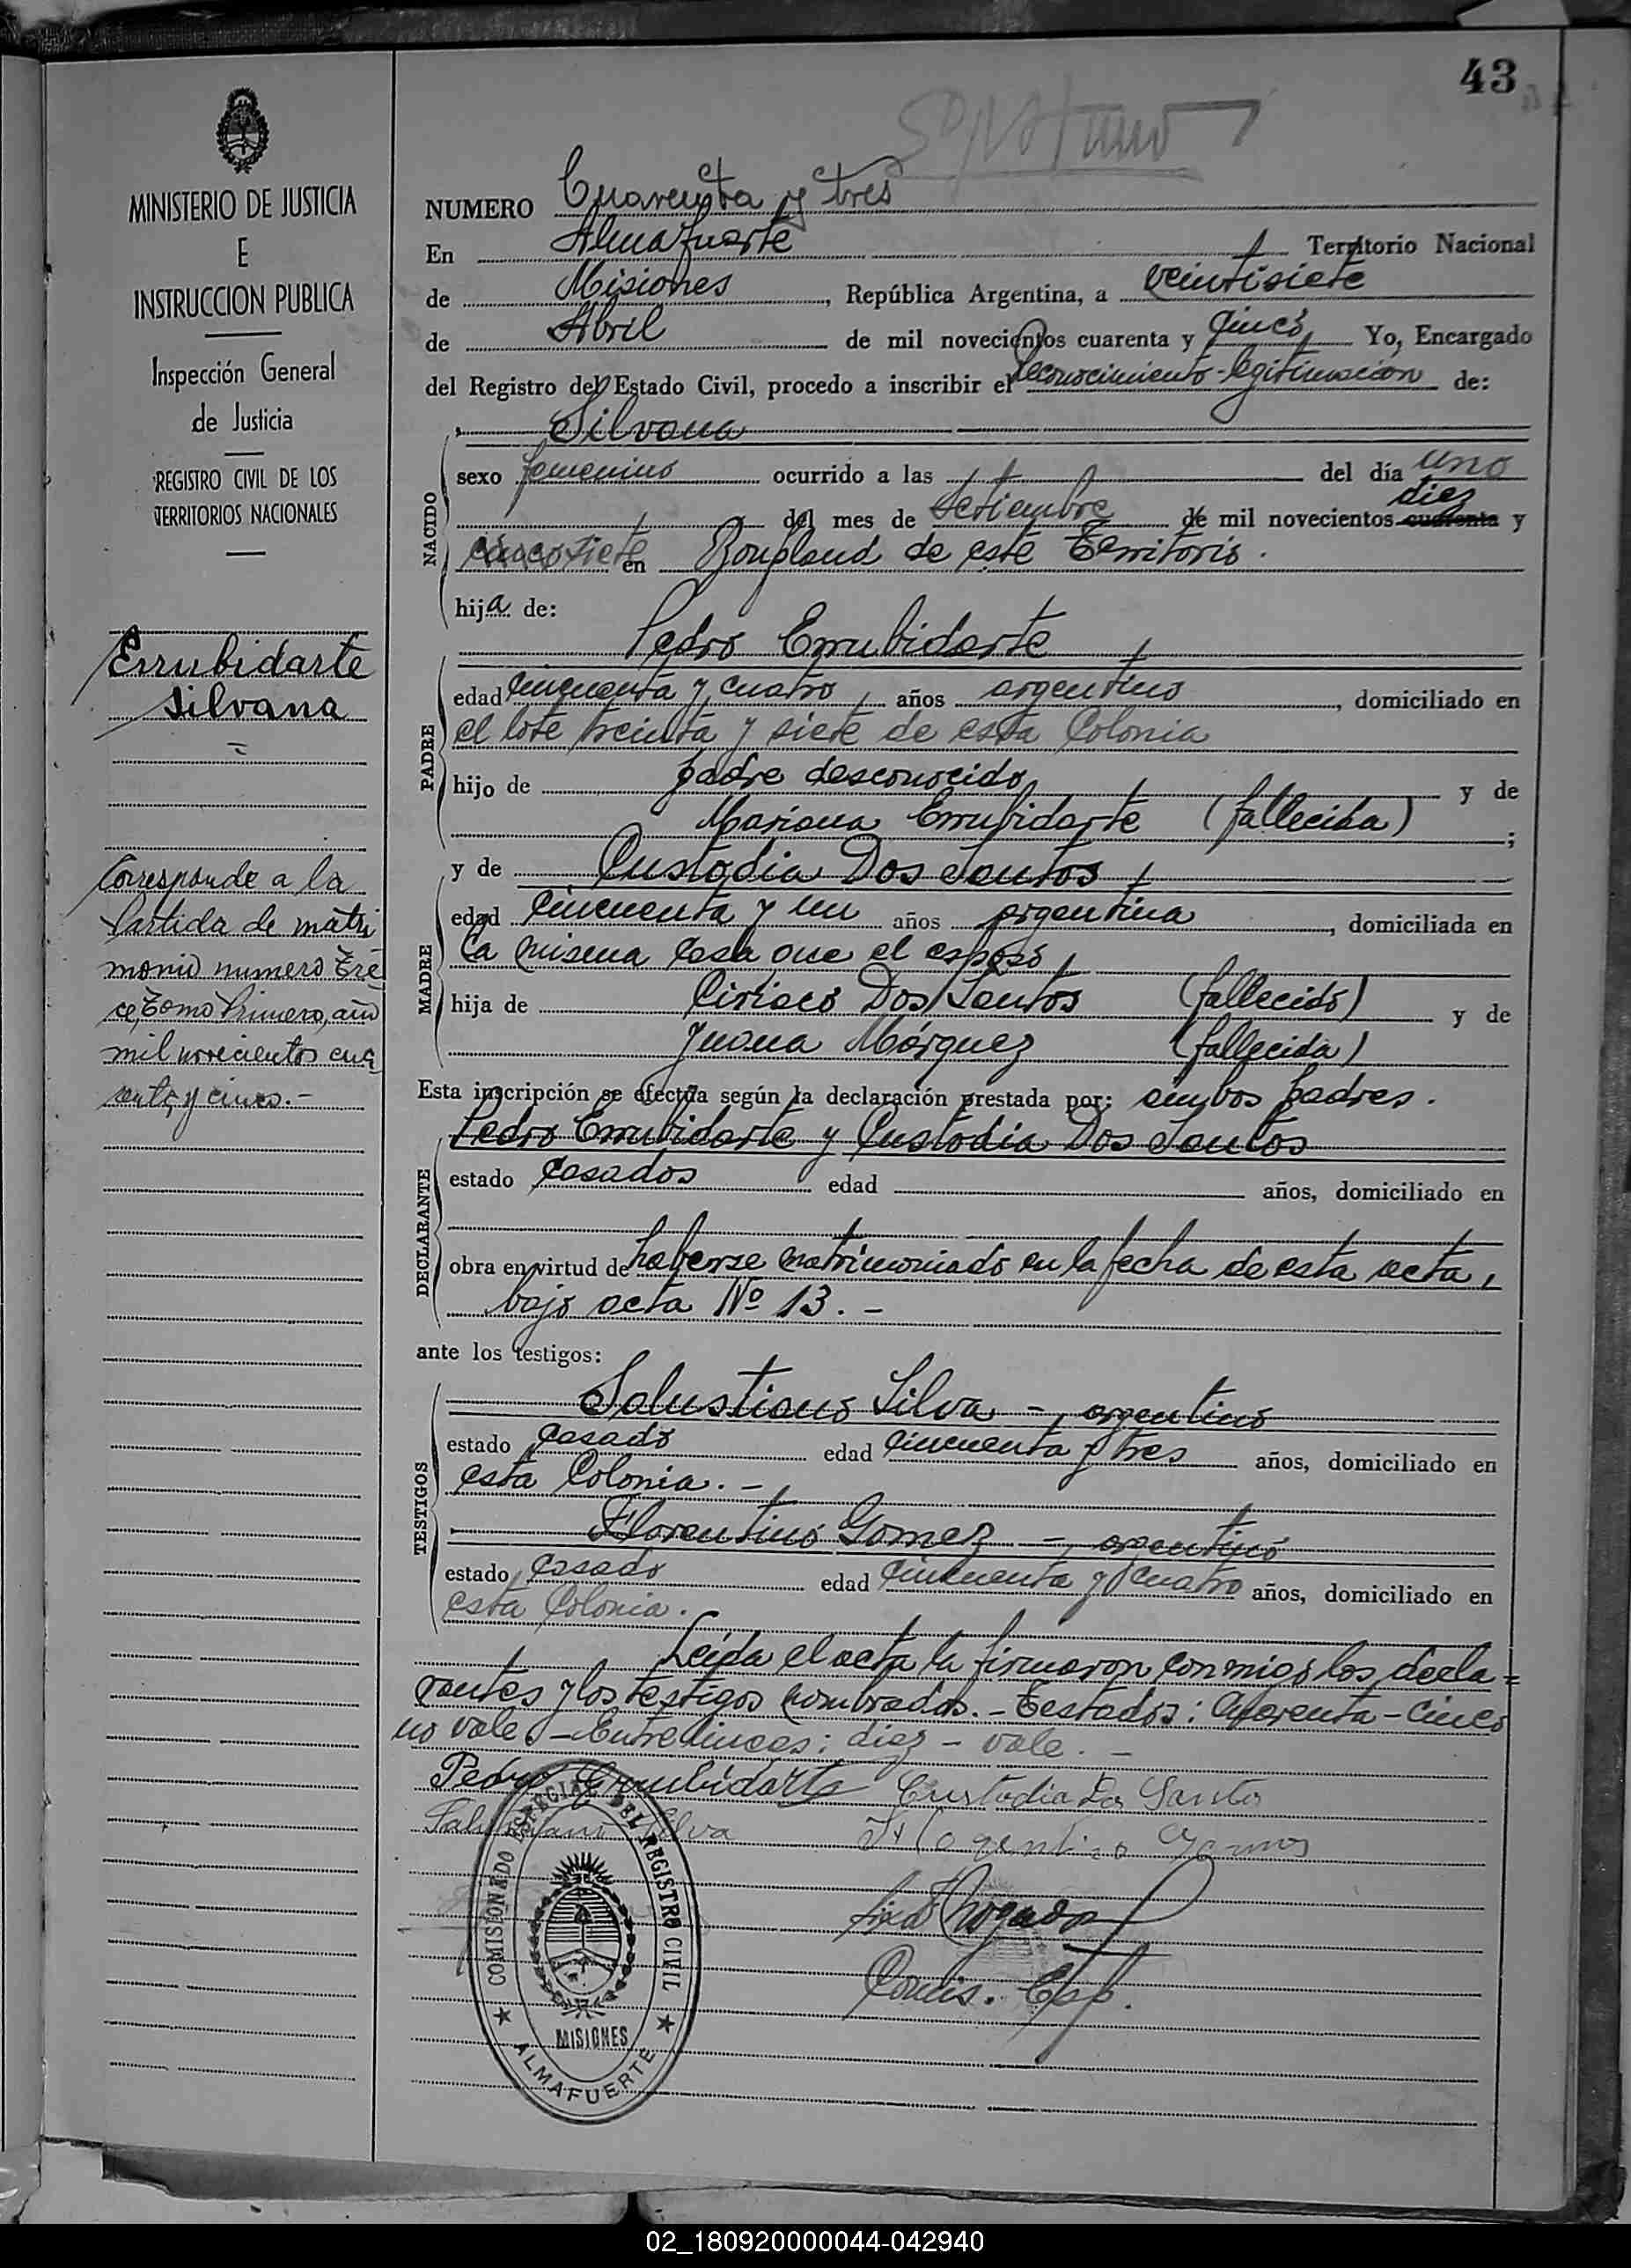 43
MINISTERIO DE JUSTICIA
E
INSTRUCCION PUBLICA
Inspección General
de Justicia
REGISTRO CIVIL DE LOS
TERRITORIOS NACIONALES
Errubidarte
Silvana
Corresponde a la
Partida de matri
monio numero Tre
ce, Tomo Primero, año
mil novecientos cua
renta y cinco.-
NUMERO Cuarenta y tres
En Almafuerte Territorio Nacional
de Misiones, República Argentina, a veintisiete
de Abril de mil novecientos cuarenta y cinco Yo, Encargado
del Registro del Estado Civil, procedo a inscribir el reconocimiento-legitimación de:
Silvana
NACIDO
sexo femenino ocurrido a las del día uno
diez
del mes de Setiembre de mil novecientos cuarenta y
cinco siete en Bonpland de este Territorio.
hija de:
Pedro Errubidarte
PADRE
edad cincuenta y cuatro, años argentino, domiciliado en
el lote treinta y siete de esta Colonia
hijo de padre desconocido, y de
Mariana Errubidarte (fallecida);
y de Custodia Dos Santos
MADRE
edad cincuenta y un años argentina, domiciliada en
la misma casa que el esposo,
hija de Ciriaco Dos Santos (fallecido) y de
Juana Márquez (fallecida)
Esta inscripción se efectúa según la declaración prestada por: ambos padres.
DECLARANTE
Pedro Errubidarte y Custodia Dos Santos
estado casados edad años, domiciliado en
obra en virtud de haberse matrimoniado en la fecha de esta acta,
bajo acta Nº 13.-
ante los testigos:
TESTIGOS
Salustiano Silva -, argentino
estado casado edad cincuenta y tres años, domiciliado en
esta Colonia.-
Florentino Gomez -, argentino
estado casado edad cincuenta y cuatro años, domiciliado en
esta Colonia.
Leída el acta la firmaron conmigo los decla=
rantes y los testigos nombrados.- Testados: cuarenta-cinco
no vale - Entrelineas: diez - vale.-
Pedro Errubidarte Custodia Dos Santos
Salustiano Silva
Comis. Esp.
COMISIONADO ESPECIAL DEL REGISTRO CIVIL
MISIONES
ALMAFUERTE
02_180920000044-042940